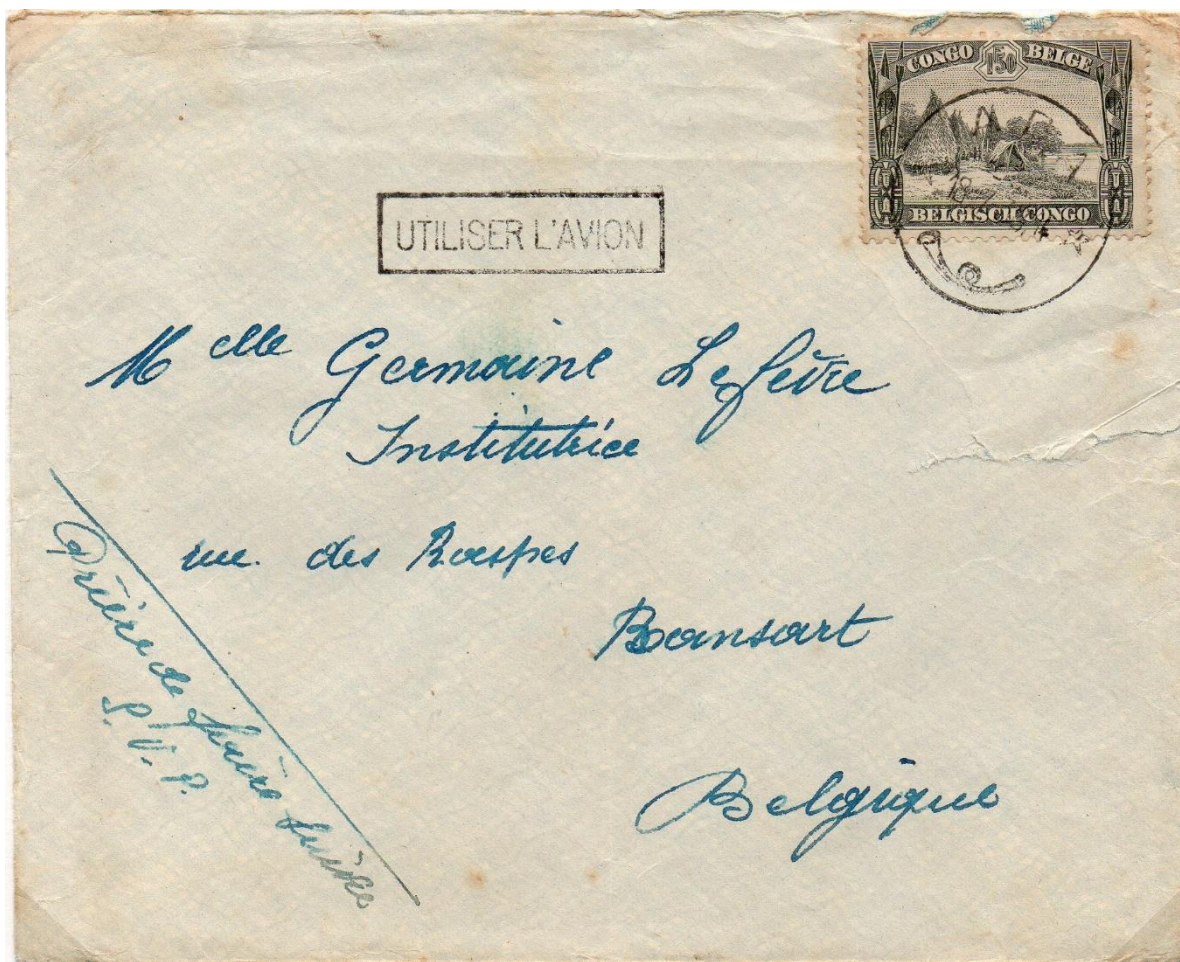 CONGO BELGE
1.50
BELGISCH CONGO
UTILISER L'AVION
Melle Germaine Lefèvre
Institutrice
rue des Raspes
Ransart
Belgique
Prière de faire suivre
S.V.P.